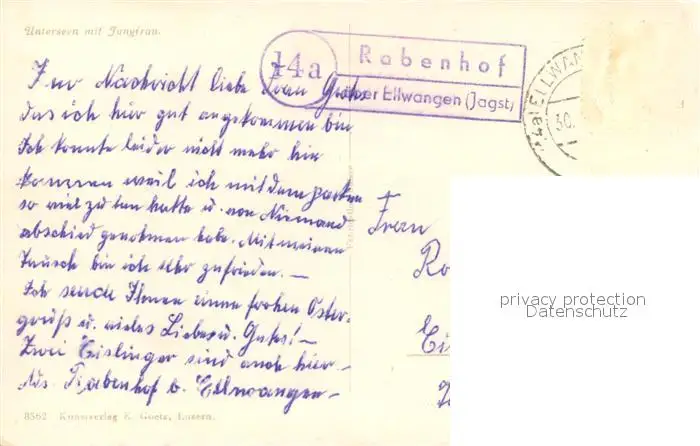 Unterseen mit Jungfrau.
14a
Rabenhof
über Ellwangen (Jagst)
ELLWAN
30.
Zur Nachricht liebe Frau
das ich hier gut angekommen bin
Ich konnte leider nicht mehr hin
kommen weil ich mit dem packen
so viel zu tun hatte u. von Niemand
abschied genohmen habe. Mit meinen
Tausch bin ich sehr zufrieden. —
Ich sende Ihnen einen frohen Oster-
gruß u. vieles Liebes u. Gutes! —
Zwei Eislinger sind auch hier —
Ads. Rabenhof b. Ellwangen —
Frau
Ro
Ei
8562 Kunstverlag E. Goetz, Luzern.
privacy protection
Datenschutz